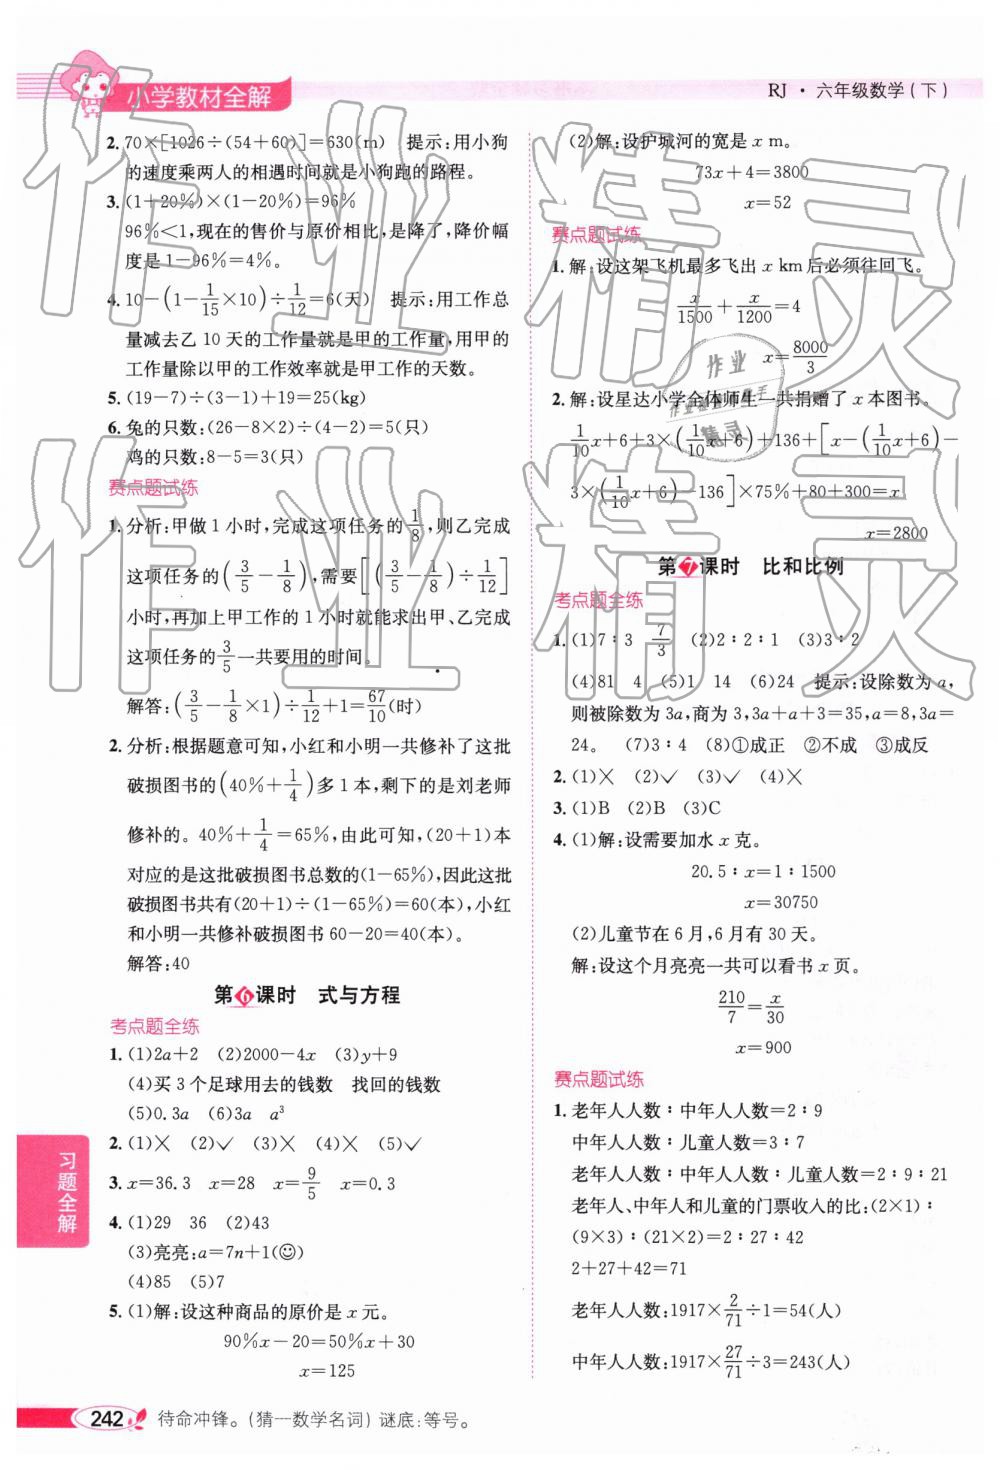 小学教材全解
RJ·六年级数学(下)
2. 70×[1026÷(54+60)]=630(m)　提示:用小狗
的速度乘两人的相遇时间就是小狗跑的路程。
3. (1+20%)×(1-20%)=96%
96%<1,现在的售价与原价相比,是降了,降价幅
度是1-96%=4%。
4. 10-(1-1/15×10)÷1/12=6(天)　提示:用工作总
量减去乙 10 天的工作量就是甲的工作量,用甲的
工作量除以甲的工作效率就是甲工作的天数。
5. (19-7)÷(3-1)+19=25(kg)
6. 兔的只数:(26-8×2)÷(4-2)=5(只)
鸡的只数:8-5=3(只)
赛点题试练
1. 分析:甲做 1 小时,完成这项任务的1/8,则乙完成
这项任务的(3/5-1/8),需要[(3/5-1/8)÷1/12]
小时,再加上甲工作的 1 小时就能求出甲、乙完成
这项任务的3/5一共要用的时间。
解答:(3/5-1/8×1)÷1/12+1=67/10(时)
2. 分析:根据题意可知,小红和小明一共修补了这批
破损图书的(40%+1/4)多1本,剩下的是刘老师
修补的。40%+1/4=65%,由此可知,(20+1)本
对应的是这批破损图书总数的(1-65%),因此这批
破损图书共有(20+1)÷(1-65%)=60(本),小红
和小明一共修补破损图书 60-20=40(本)。
解答:40
第6课时　式与方程
考点题全练
1. (1)2a+2　(2)2000-4x　(3)y+9
(4)买 3 个足球用去的钱数　找回的钱数
(5)0.3a　(6)3a　a³
2. (1)×　(2)✓　(3)×　(4)×　(5)✓
3. x=36.3　x=28　x=9/5　x=0.3
4. (1)29　36　(2)43
(3)亮亮:a=7n+1(☺)
(4)85　(5)7
5. (1)解:设这种商品的原价是 x 元。
90%x-20=50%x+30
x=125
(2)解:设护城河的宽是 x m。
73x+4=3800
x=52
赛点题试练
1. 解:设这架飞机最多飞出 x km后必须往回飞。
x/1500+x/1200=4
x=8000/3
2. 解:设星达小学全体师生一共捐赠了 x 本图书。
1/10x+6+3×(1/10x+6)+136+[x-(1/10x+6)-
3×(1/10x+6)-136]×75%+80+300=x
x=2800
第7课时　比和比例
考点题全练
1. (1)7∶3　7/3　(2)2∶2∶1　(3)3∶2
(4)81　4　(5)1　14　(6)24　提示:设除数为a,
则被除数为3a,商为3,3a+a+3=35,a=8,3a=
24。　(7)3∶4　(8)①成正　②不成　③成反
2. (1)×　(2)✓　(3)✓　(4)×
3. (1)B　(2)B　(3)C
4. (1)解:设需要加水 x 克。
20.5∶x=1∶1500
x=30750
(2)儿童节在 6 月,6 月有 30 天。
解:设这个月亮亮一共可以看书 x 页。
210/7=x/30
x=900
赛点题试练
1. 老年人人数∶中年人人数=2∶9
中年人人数∶儿童人数=3∶7
老年人人数∶中年人人数∶儿童人数=2∶9∶21
老年人、中年人和儿童的门票收入的比:(2×1)∶
(9×3)∶(21×2)=2∶27∶42
2+27+42=71
老年人人数:1917×2/71÷1=54(人)
中年人人数:1917×27/71÷3=243(人)
习题全解
242　待命冲锋。(猜一数学名词) 谜底:等号。
作业精灵
作业精灵
作业
精灵